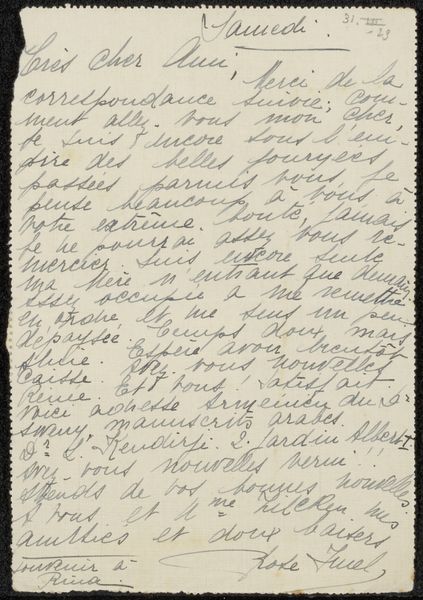 Samedi.
31. III -23
Très cher Ami,
Merci de la
correspondance suivie, Com-
ment allez-vous mon cher,
je suis encore sous l'em-
pire des belles journées
passées parmis vous, je
pense beaucoup à vous à
votre extrême bonté, jamais
je ne pourrai assez vous re-
mercier. Suis encore seule
ma Mère n'entrant que demain,
assez occupée à me remettre
en ordre et me sens un peu
dépaysée. Temps doux, mais
Espère avoir bientôt
caisse. Avez vous nouvelles
Et vous! Satisfait
voici adresse du Dr
manuscrits arabes.
Dr S. Kendirji. 2. Jardin Albert I.
avez vous nouvelles !!
Attends de vos bonnes nouvelles.
A vous et Mme Zilcken mes
amitiés et doux baisers
Rose
souvenir à
Rina.